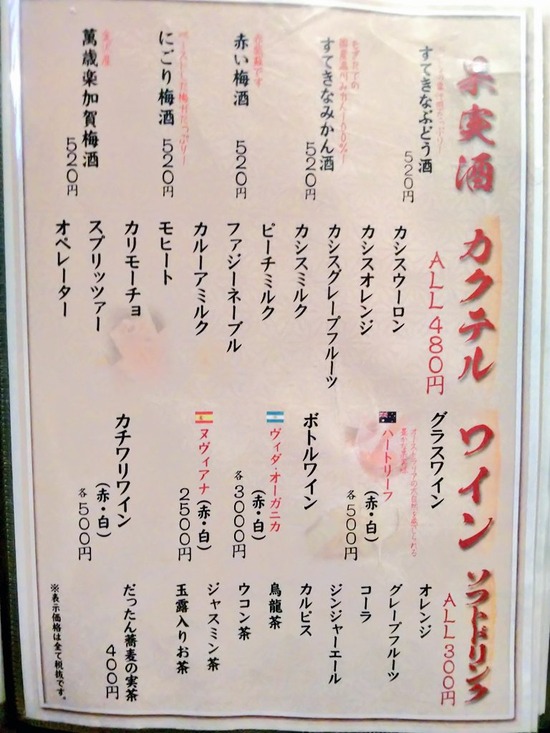 果実酒
すてきなぶどう酒
520円
国産温州みかん100%!
すてきなみかん酒
520円
赤い梅酒
520円
にごり梅酒
520円
萬歳楽加賀梅酒
520円
カクテル
ALL480円
カシスウーロン
カシスオレンジ
カシスグレープフルーツ
カシスミルク
ピーチミルク
ファジーネーブル
カルーアミルク
モヒート
カリモーチョ
スプリッツァー
オペレーター
ワイン
グラスワイン
ハートリーフ
(赤・白)
各500円
ボトルワイン
ヴィダ・オーガニカ
(赤・白)
各3000円
ヌヴィアナ(赤・白)
2500円
カチワリワイン
(赤・白)
各500円
ソフトドリンク
ALL300円
オレンジ
グレープフルーツ
コーラ
ジンジャーエール
カルピス
烏龍茶
ウコン茶
ジャスミン茶
玉露入りお茶
だったん蕎麦の実茶
400円
※表示価格は全て税抜です。